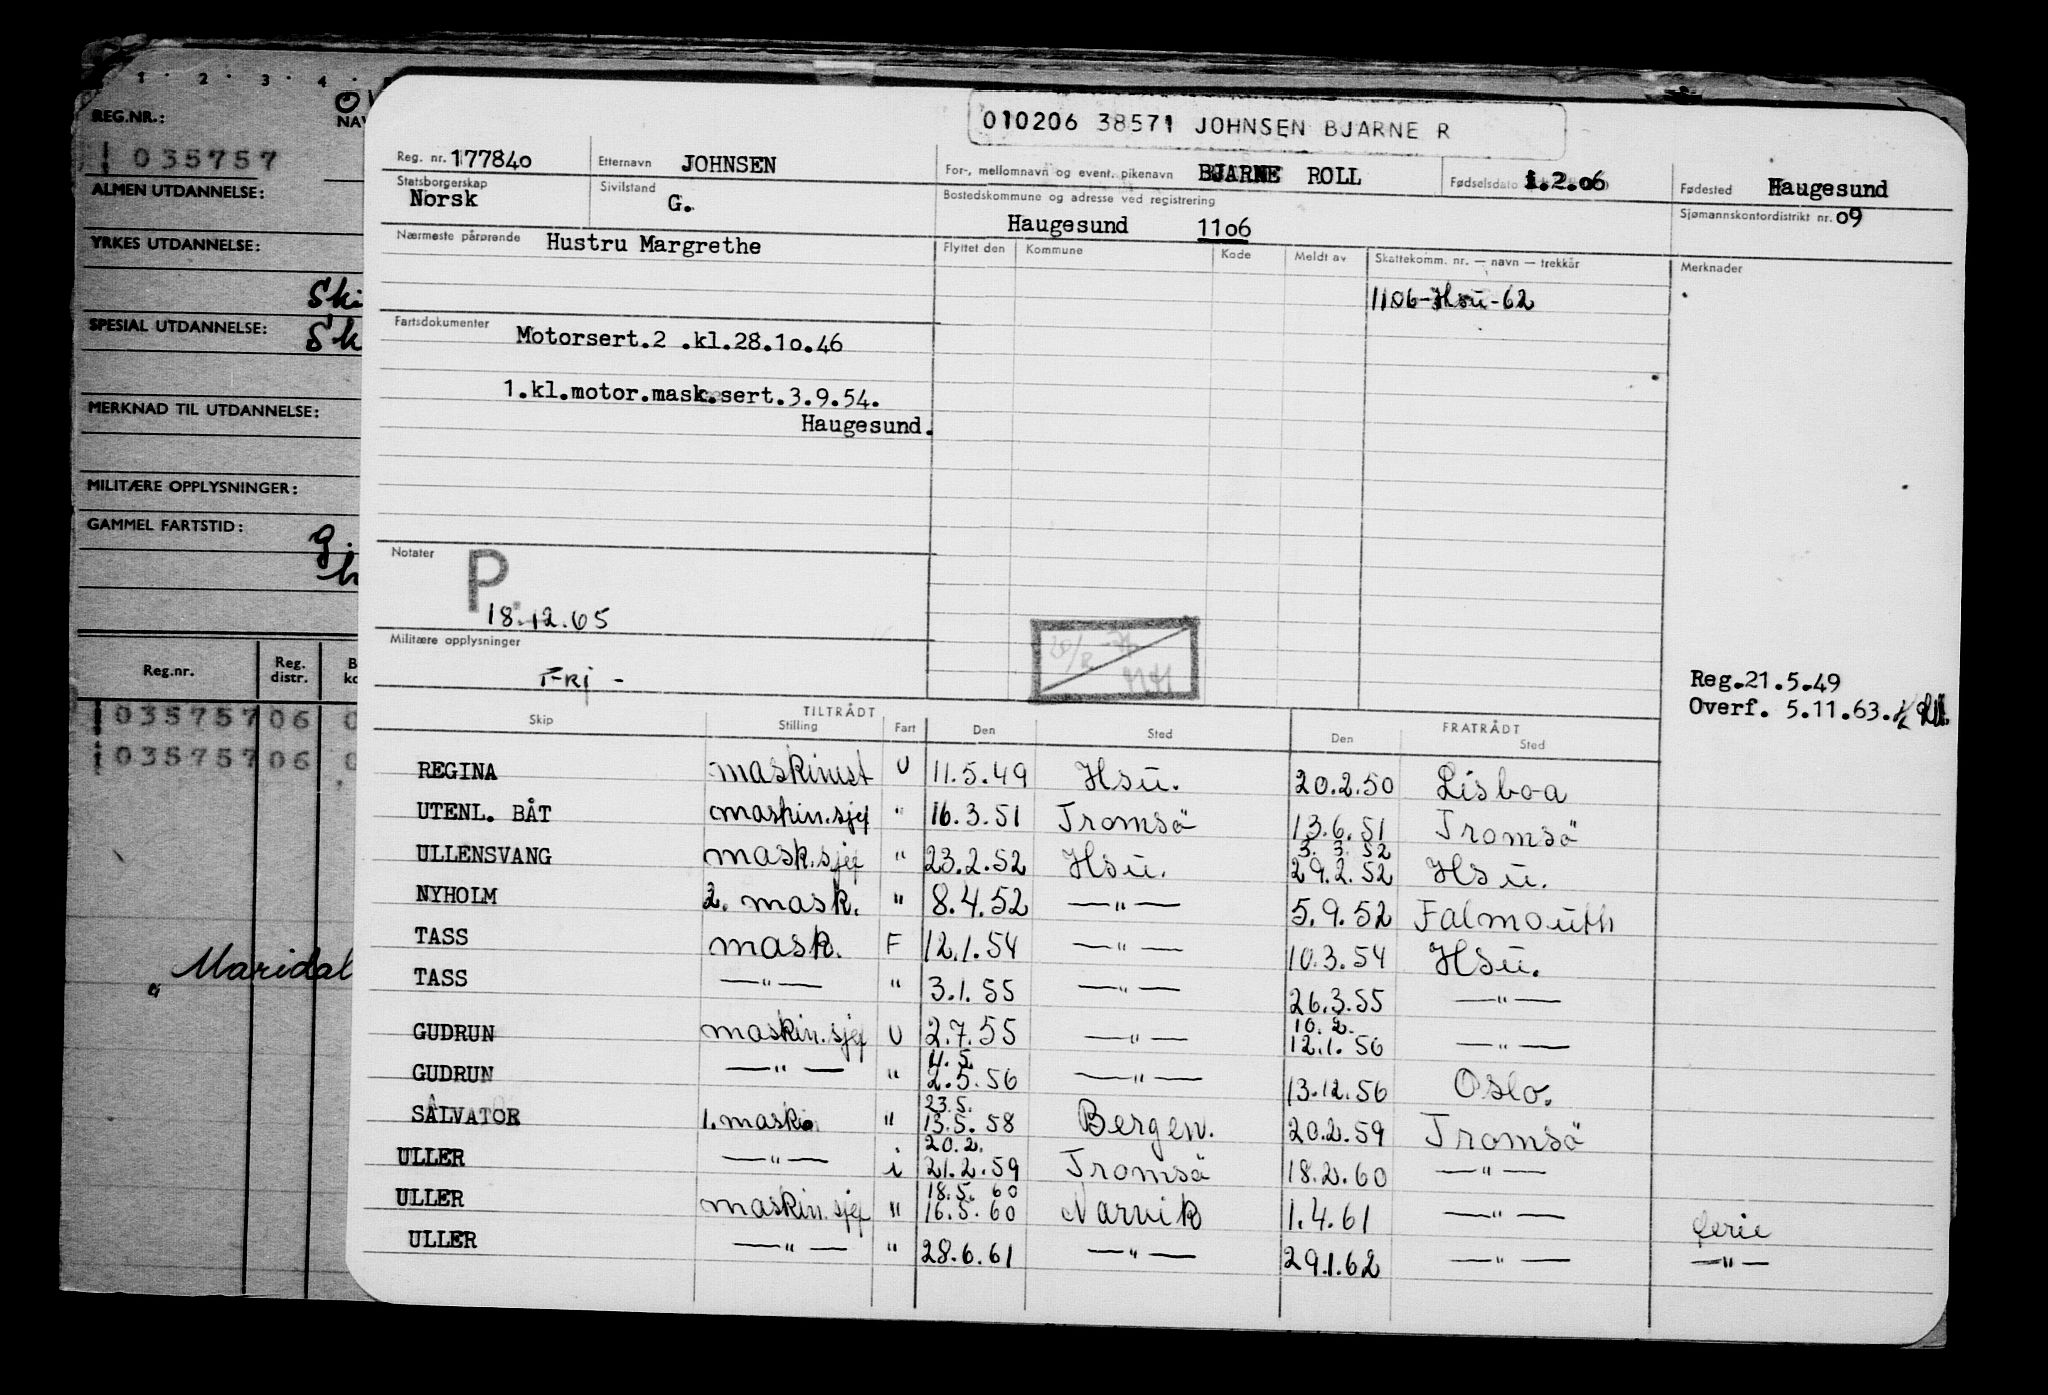 1 · 2 · 3 · 4 ·
REG.NR.:
035757
ALMEN UTDANNELSE:
YRKES UTDANNELSE:
SPESIAL UTDANNELSE:
MERKNAD TIL UTDANNELSE:
MILITÆRE OPPLYSNINGER:
GAMMEL FARTSTID:
Reg.nr. Reg. distr.
035757 06
035757 06
Maridal
010206 38571 JOHNSEN BJARNE R
Reg. nr. 177840 Etternavn JOHNSEN For-, mellomnavn og event. pikenavn BJARNE ROLL Fødselsdato 1.2.06 Fødested Haugesund
Statsborgerskap Norsk Sivilstand G. Bostedskommune og adresse ved registrering Haugesund 1106 Sjømannskontordistrikt nr. 09
Nærmeste pårørende Hustru Margrethe Flyttet den Kommune Kode Meldt av Skattekomm. nr. — navn — trekkår Merknader
1106-Hsu-62
Fartsdokumenter Motorsert.2 .kl.28.10.46
1.kl.motor.mask.sert.3.9.54.
Haugesund.
Notater P
18.12.65
Militære opplysninger
Fri -
Reg.21.5.49
Overf. 5.11.63.
TILTRÅDT FRATRÅDT
Skip Stilling Fart Den Sted Den Sted
REGINA maskinist U 11.5.49 Hsu. 20.2.50 Lisboa
UTENL. BÅT maskin.sjef " 16.3.51 Tromsö 13.6.51 Tromsö
3. 3. 52
ULLENSVANG mask.sjef " 23.2.52 Hsu. 29.2.52 Hsu.
NYHOLM 2. mask. " 8.4.52 —"— 5.9.52 Falmouth
TASS mask. F 12.1.54 —"— 10.3.54 Hsu.
TASS —"— " 3.1.55 —"— 26.3.55 —"—
10. 2.
GUDRUN maskin.sjef U 2.7.55 —"— 12.1.56 —"—
11. 5.
GUDRUN —"— " 2.5.56 —"— 13.12.56 Oslo.
23.5.
SALVATOR 1. mask. " 13.5.58 Bergen. 20.2.59 Tromsö
20.2.
ULLER —"— i 21.2.59 Tromsö 18.2.60 —"—
18.5. 60
ULLER maskin.sjef " 16.5.60 Narvik 1.4.61 —"— ferie
ULLER —"— " 28.6.61 —"— 29.1.62 —"— —"—